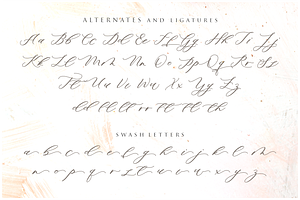 ALTERNATES AND LIGATURES
Aa Bb Cc Dd Ee Ff Gg Hh Ii Jj
Kk Ll Mm Nn Oo Pp Qq Rr Ss
Tt Uu Vv Ww Xx Yy Zz
SWASH LETTERS
a b c d e f g h i j k l m
n o p q r s t u v w x y z